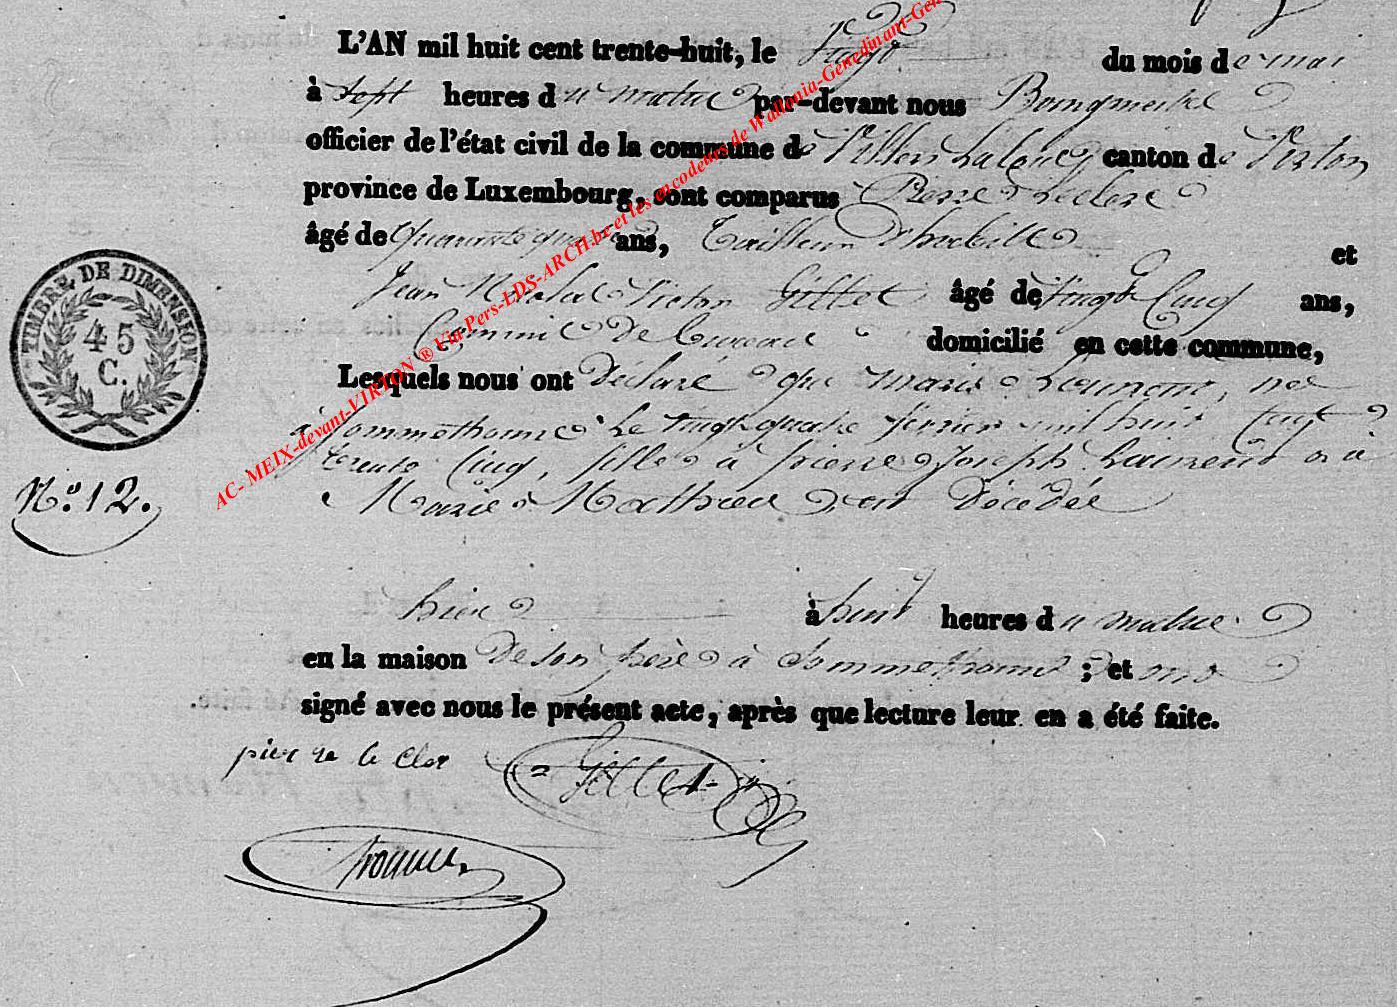 L'AN mil huit cent trente-huit, le vingt du mois de mai
à sept heures du matin par-devant nous Bourgmestre
officier de l'état civil de la commune de Villers La Loue canton de Virton
province de Luxembourg, sont comparus Pierre Leclerc
âgé de Quarante ans, Tailleur d'habille et
Jean Nicolas Victor Gillet âgé de vingt Cinq ans,
Commis de bureau domicilié en cette commune,
Lesquels nous ont Déclaré que Marie Laurent, née
à Sommethonne le vingt quatre février mil huit Cent
trente Cinq, fille à pierre Joseph Laurent et à
Marie Mathieu est Décédée
hier à huit heures du matin
en la maison De son père à Sommethonne ; et ont
signé avec nous le présent acte, après que lecture leur en a été faite.
pierre le cler Gillet
TIMBRE DE DIMENSION
45
C.
N.º 12.
AC- MEIX-devant-VIRTON ® Via Pers-LDS-ARCH.be et les encodeurs de Wallonia-Genedinant-Gen